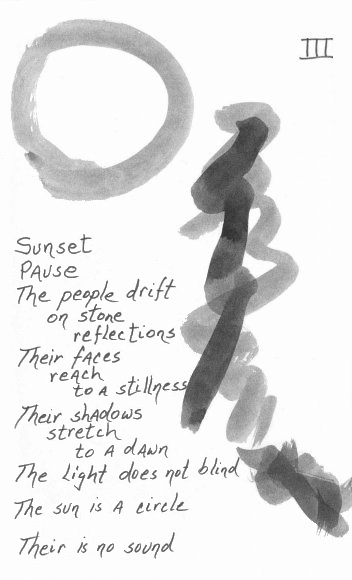 III
Sunset
Pause
The people drift
on stone
reflections
Their faces
reach
to a stillness
Their shadows
stretch
to a dawn
The Light does not blind
The sun is a circle
Their is no sound